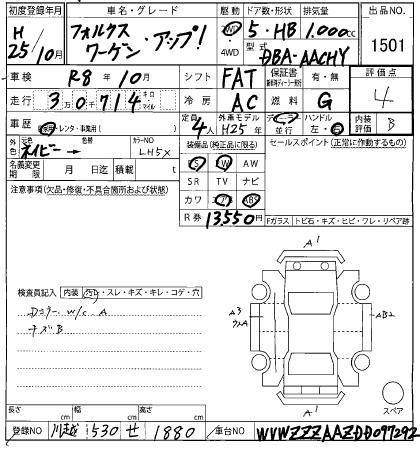 初度登録年月 車名・グレード 駆動 ドア数・形状 排気量 出品NO.
H 25年10月 フォルクスワーゲン・アップ! 2WD 4WD 5・HB 1,000cc 1501
型式 DBA-AACHY
車検 R8年10月 シフト FAT 保証書 有・無 評価点
走行 3万0千714 キロ マイル 冷房 AC 燃料 G 4
車歴 自家用・レンタ・事業用( ) 定員 4人 外車モデル H25年 ディーラー 並行 ハンドル 左・右 内装評価 B
外色 元色 ネイビー 色替 カラーNO LH5X 装備品(純正品に限る) セールスポイント(正常に作動するもの)
名義変更期限 月 日迄 積載 t PS PW AW
注意事項(欠品・修復・不具合箇所および状態) SR TV ナビ
カワ エアB ABS
R券 13,550円 Fガラス トビ石・キズ・ヒビ・ワレ・リペア跡
A1
検査員記入 内装 汚れ・スレ・キズ・キレ・コゲ・穴
Dコーナー w/c A
キズB
A3
AB2
A1
スペア
長さ cm 幅 cm 高さ cm
登録NO 川越 530 せ 1880 車台NO WVWZZZAAZDD097292